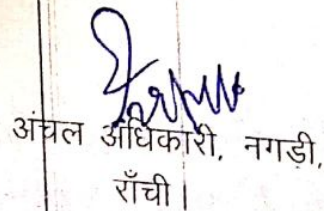 अंचल अधिकारी, नगडी,
राँची।